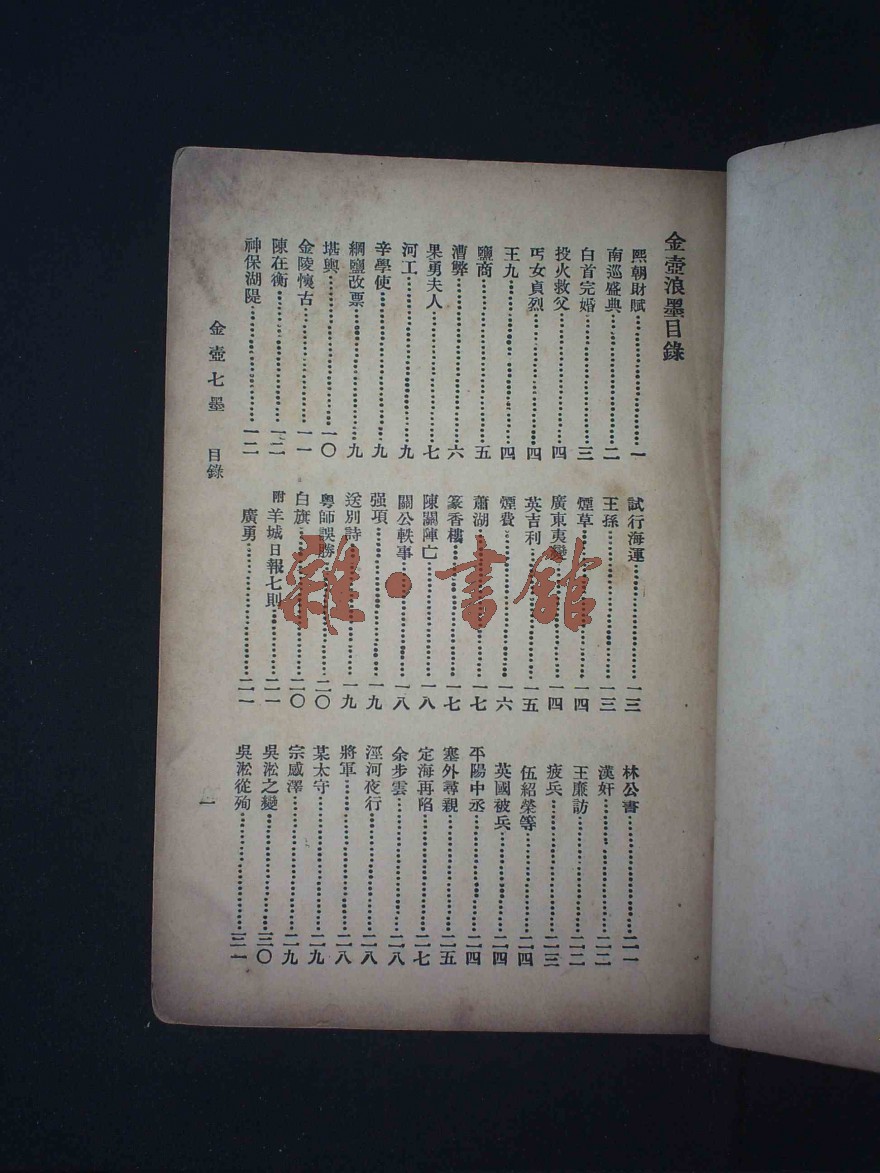 金壺浪墨目錄
熙朝財賦……一
南巡盛典……二
白首完婚……三
投火救父……四
丐女貞烈……四
王九……四
鹽商……五
漕弊……六
果勇夫人……七
河工……九
辛學使……九
綱鹽改票……九
堪輿……一〇
金陵懷古……一一
陳在衡……一二
神保湖隄……一二
試行海運……一三
王孫……一三
煙草……一四
廣東夷變……一四
英吉利……一五
煙費……一六
蕭湖……一七
篆香樓……一七
陳關陣亡……一八
關公軼事……一八
强項……一九
送別詩……一九
粵師誤勝……二〇
白旗……二〇
附羊城日報七則……二一
廣勇……二一
林公書……二一
漢奸……二二
王廉訪……二二
疲兵……二三
伍紹榮等……二四
英國被兵……二四
平陽中丞……二四
塞外尋親……二五
定海再陷……二七
余步雲……二八
涇河夜行……二八
將軍……二八
某太守……二九
宗感澤……二九
吳淞之變……三〇
吳淞從殉……三一
金壺七墨 目錄 一
雜·書館